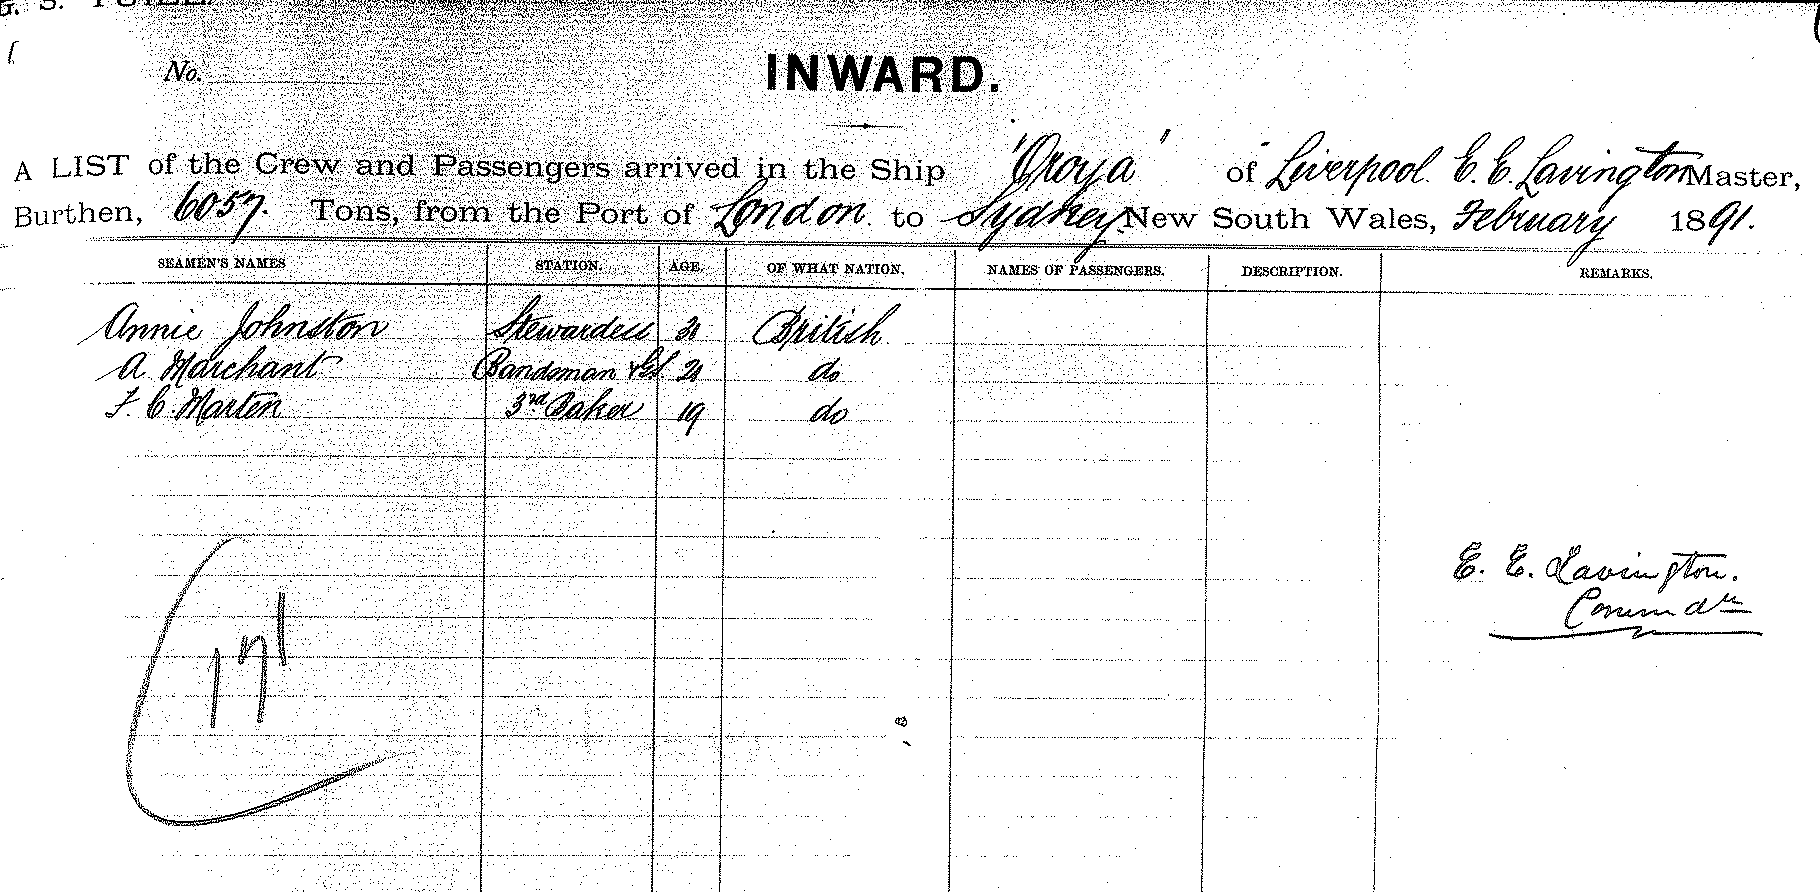 No.
INWARD.
A LIST of the Crew and Passengers arrived in the Ship "Oroya" of Liverpool. E. E. Lavington Master,
Burthen, 6057. Tons, from the Port of London to Sydney New South Wales, February 1891.
SEAMEN'S NAMES STATION. AGE. OF WHAT NATION. NAMES OF PASSENGERS. DESCRIPTION. REMARKS.
Annie Johnston Stewardess British
A Marchant Bandsman do
F. C. Marten 3rd Baker 19 do
E. E. Lavington.
Commdr
171